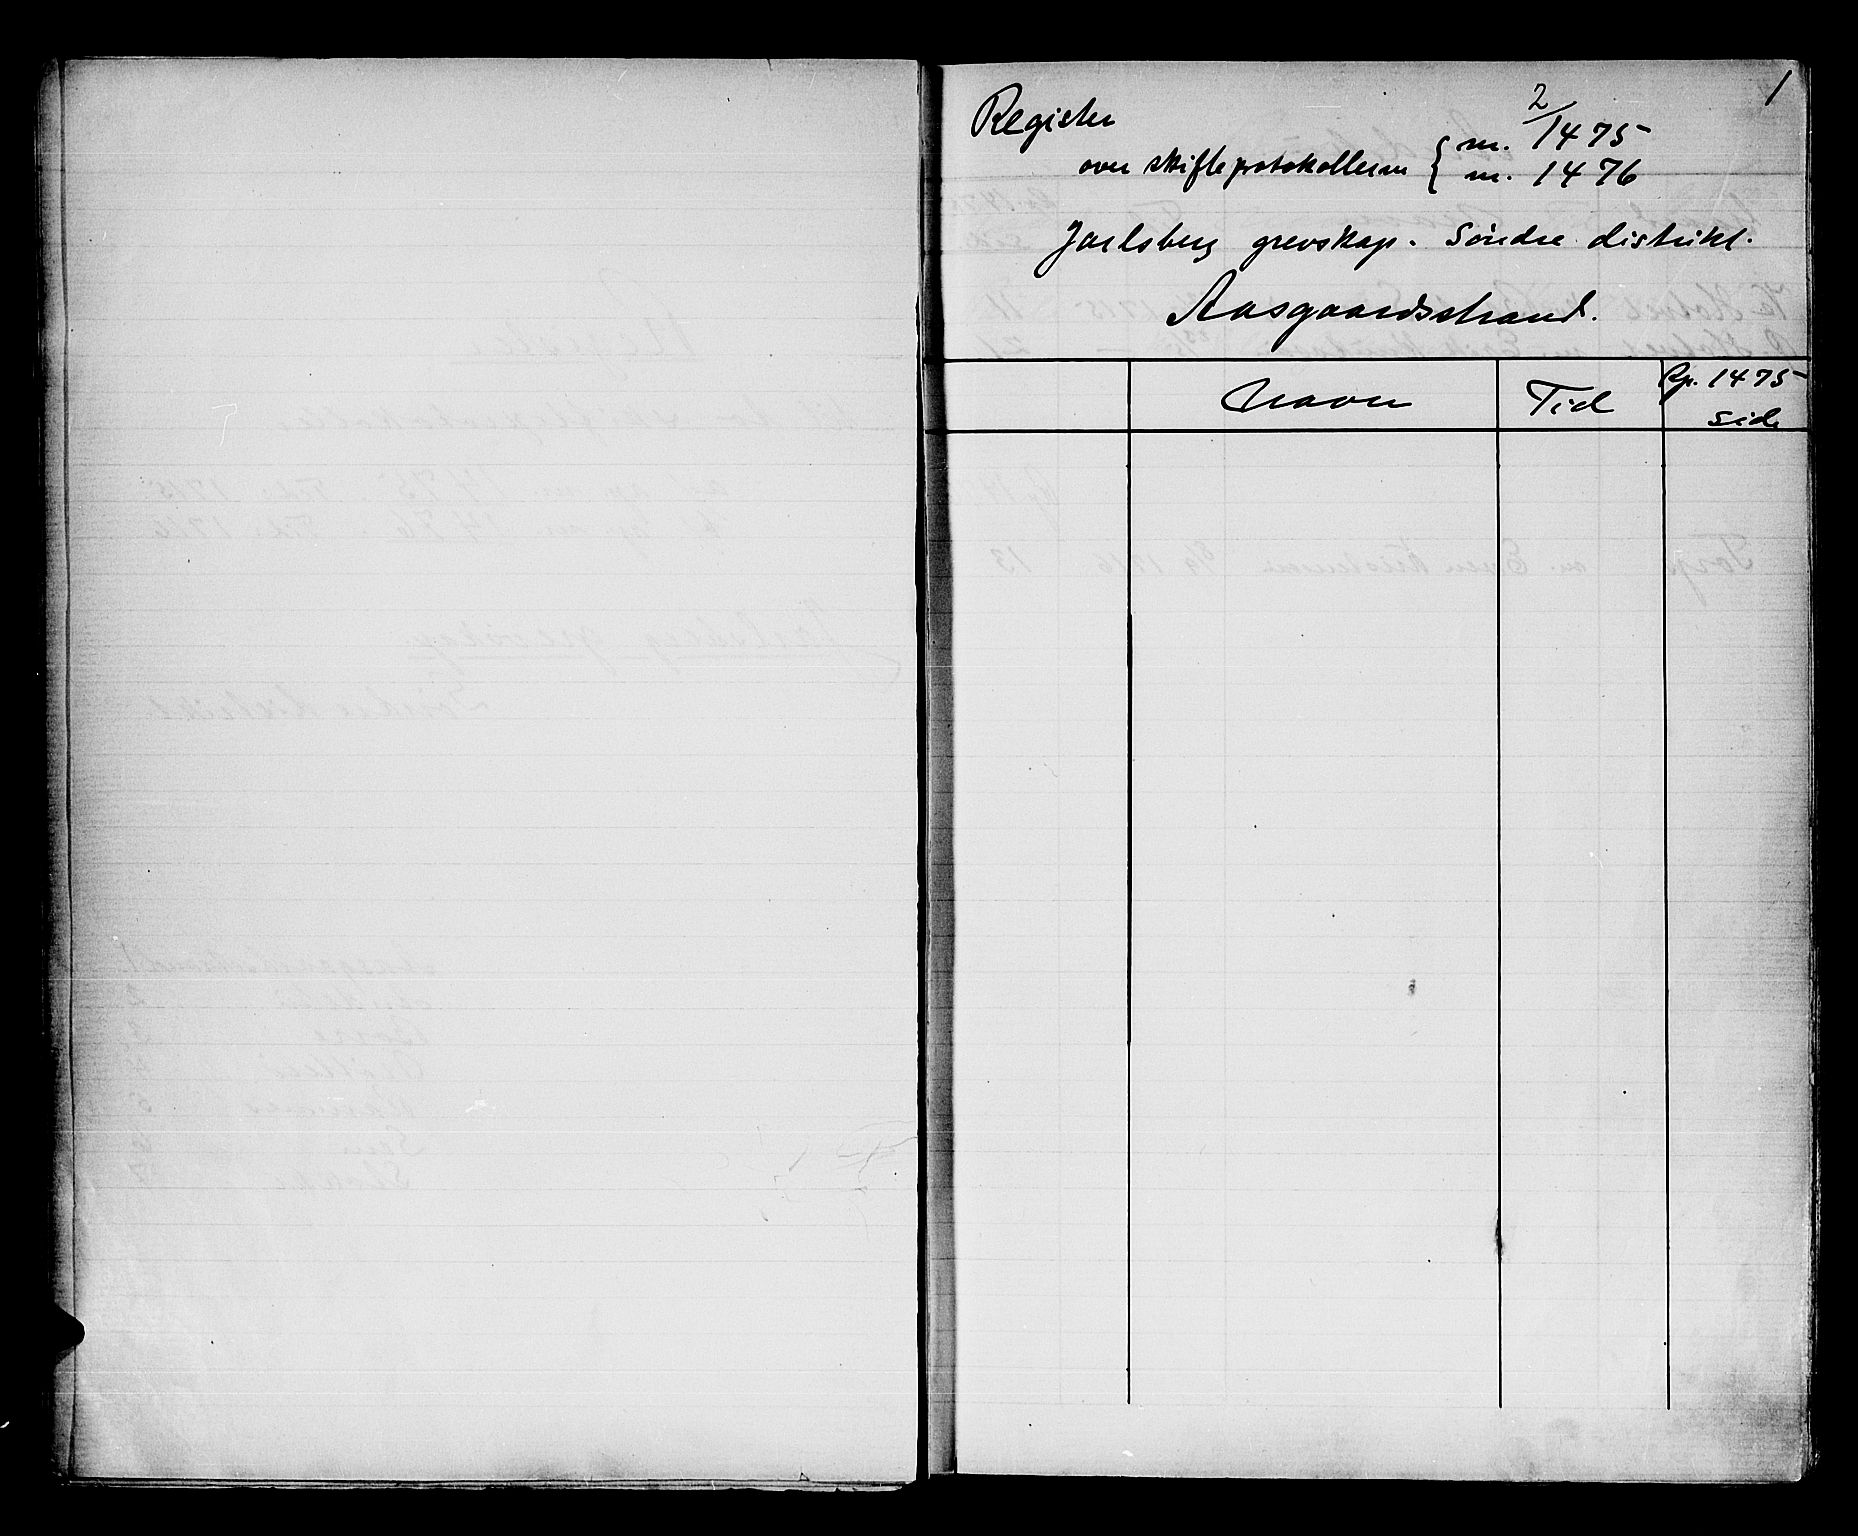 1
Register
2/
over skifteprotokollerne { nr. 1475
nr. 1476
Jarlsberg grevskap. Søndre distrikt.
Aasgaardsstrand.
Navn Tid Rp. 1475
side